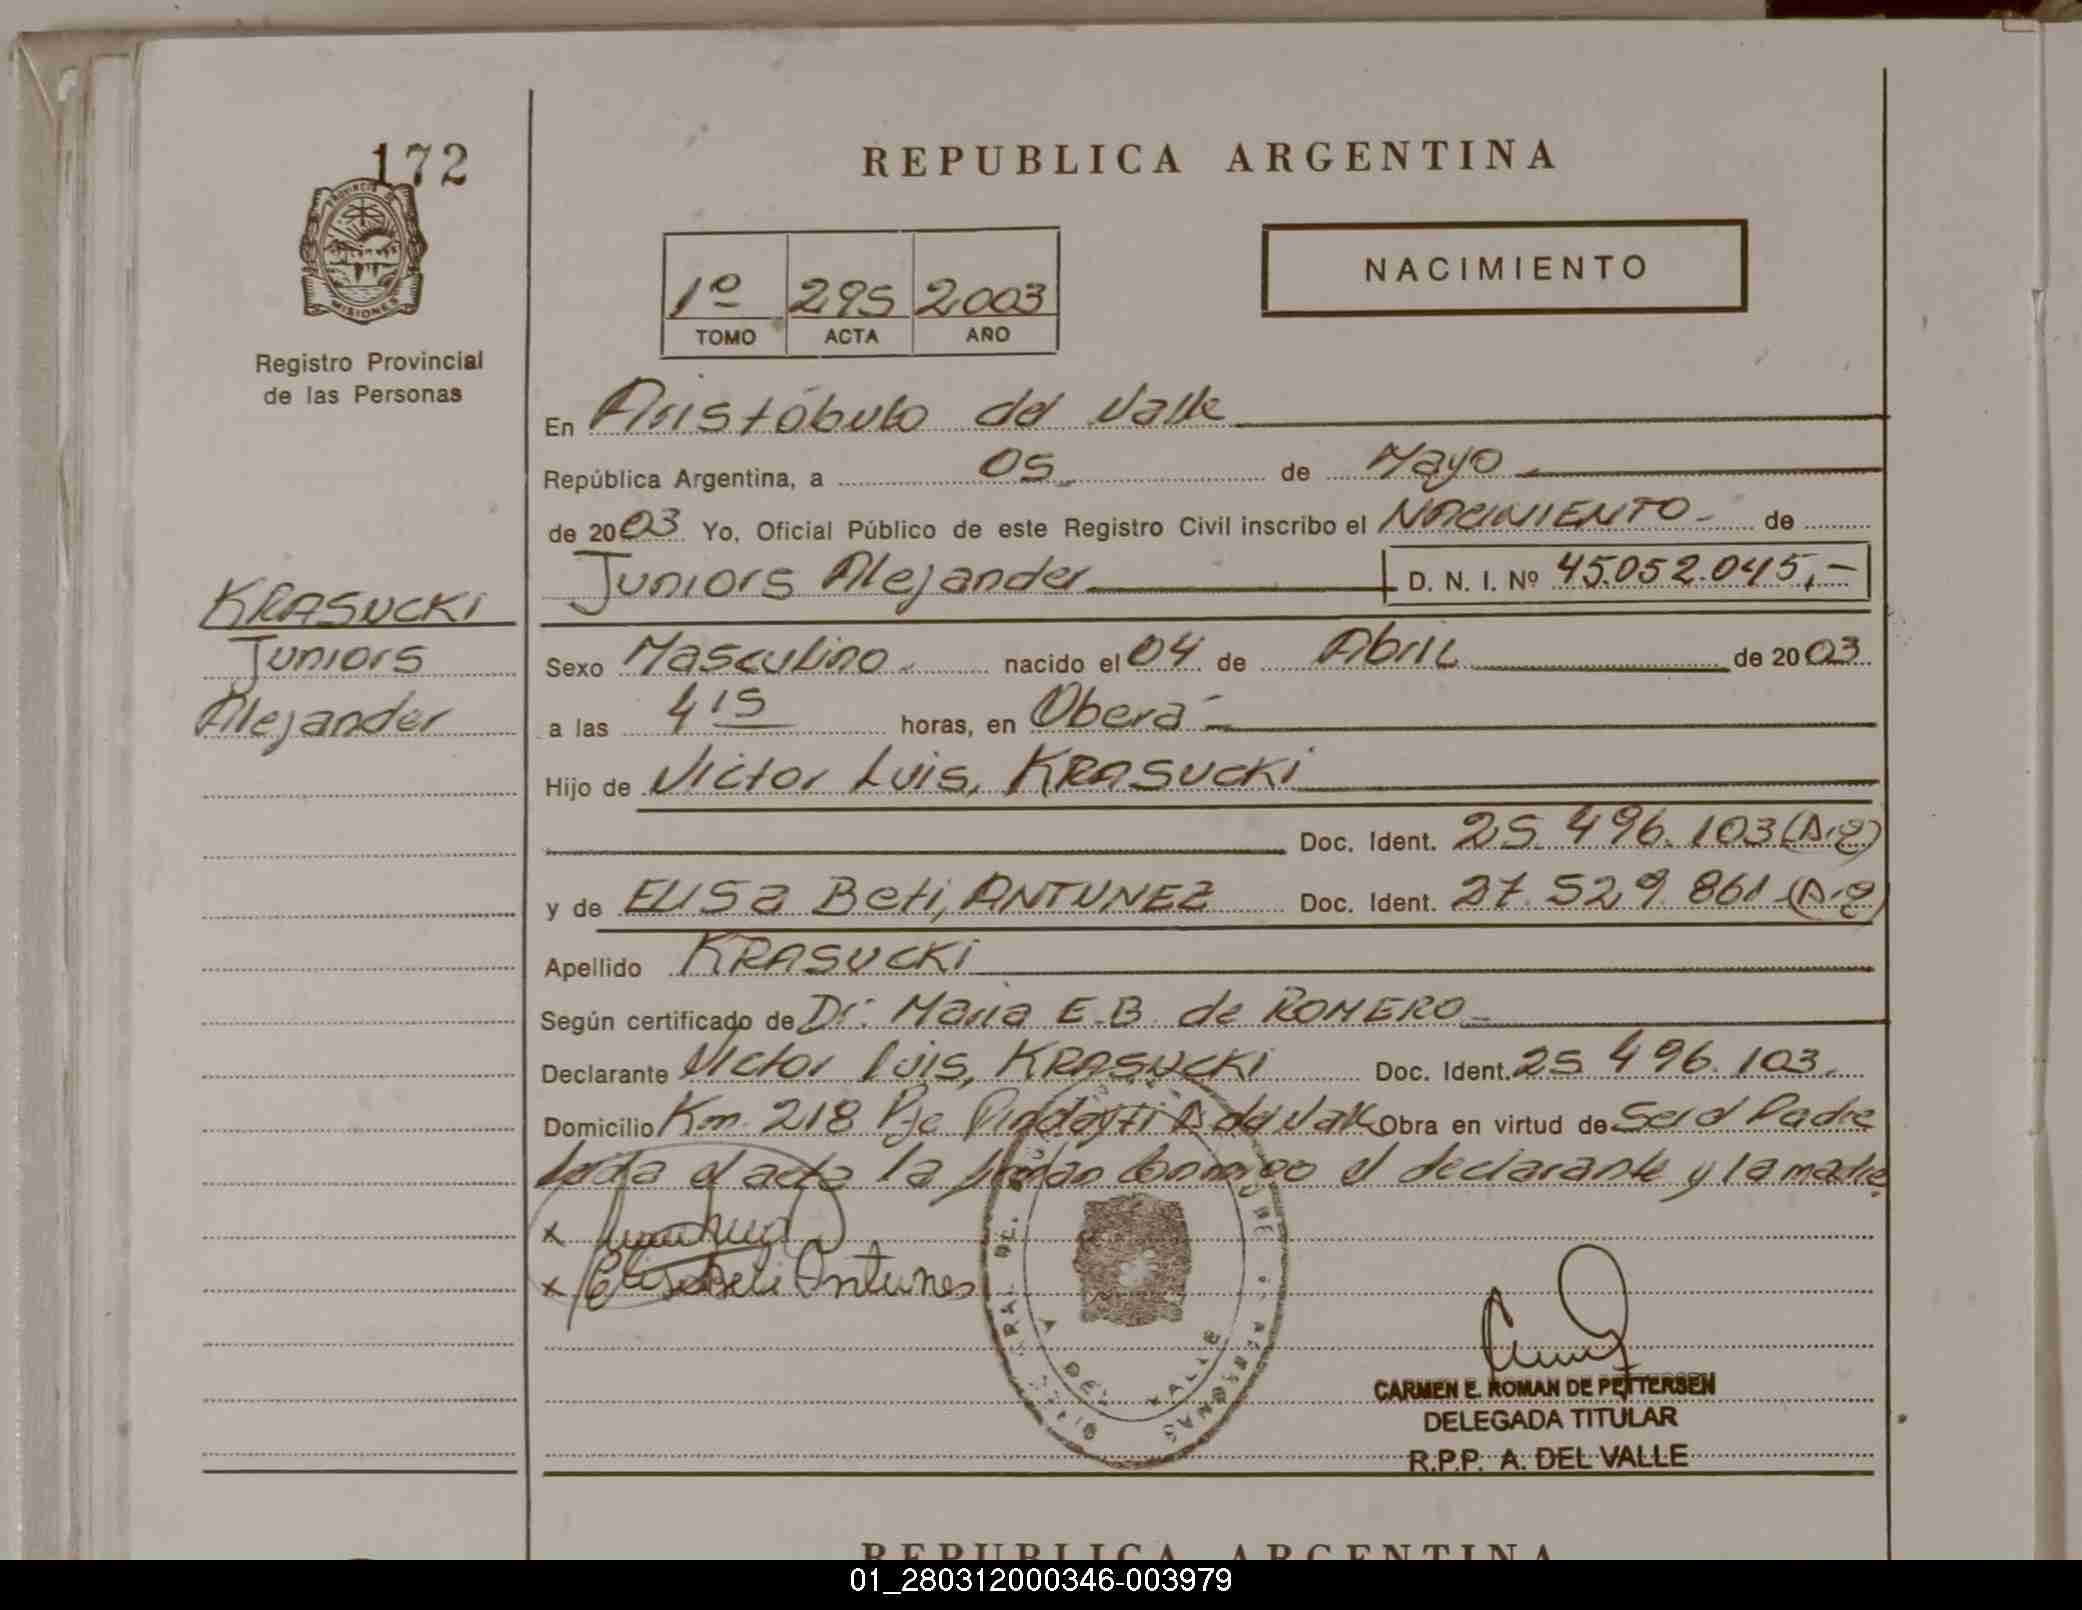 172
PROVINCIA DE
MISIONES
Registro Provincial
de las Personas
KRASUCKI
Juniors
Alejander
REPUBLICA ARGENTINA
1º 295 2003
TOMO ACTA AÑO
NACIMIENTO
En Aristóbulo del Valle
República Argentina, a 05 de Mayo
de 2003 Yo, Oficial Público de este Registro Civil inscribo el NACIMIENTO de
Juniors Alejander D. N. I. Nº 45.052.045,-
Sexo Masculino nacido el 04 de Abril de 2003
a las 4 15 horas, en Oberá
Hijo de Victor Luis, KRASUCKI
Doc. Ident. 25.496.103 (Arg)
y de Elisa Beti, ANTUNEZ Doc. Ident. 27.529.861 (Arg)
Apellido KRASUCKI
Según certificado de Dr. Maria E.B. de ROMERO
Declarante Victor Luis, KRASUCKI Doc. Ident. 25.496.103.
Domicilio Km. 218 Pje A del Valle Obra en virtud de Ser el Padre
el acta la firman conmigo el declarante y la madre
x
x Elisa Beti Antunes
DEL VALLE
CARMEN E. ROMAN DE PETTERSEN
DELEGADA TITULAR
R.P.P. A. DEL VALLE
REPUBLICA ARGENTINA
01_280312000346-003979